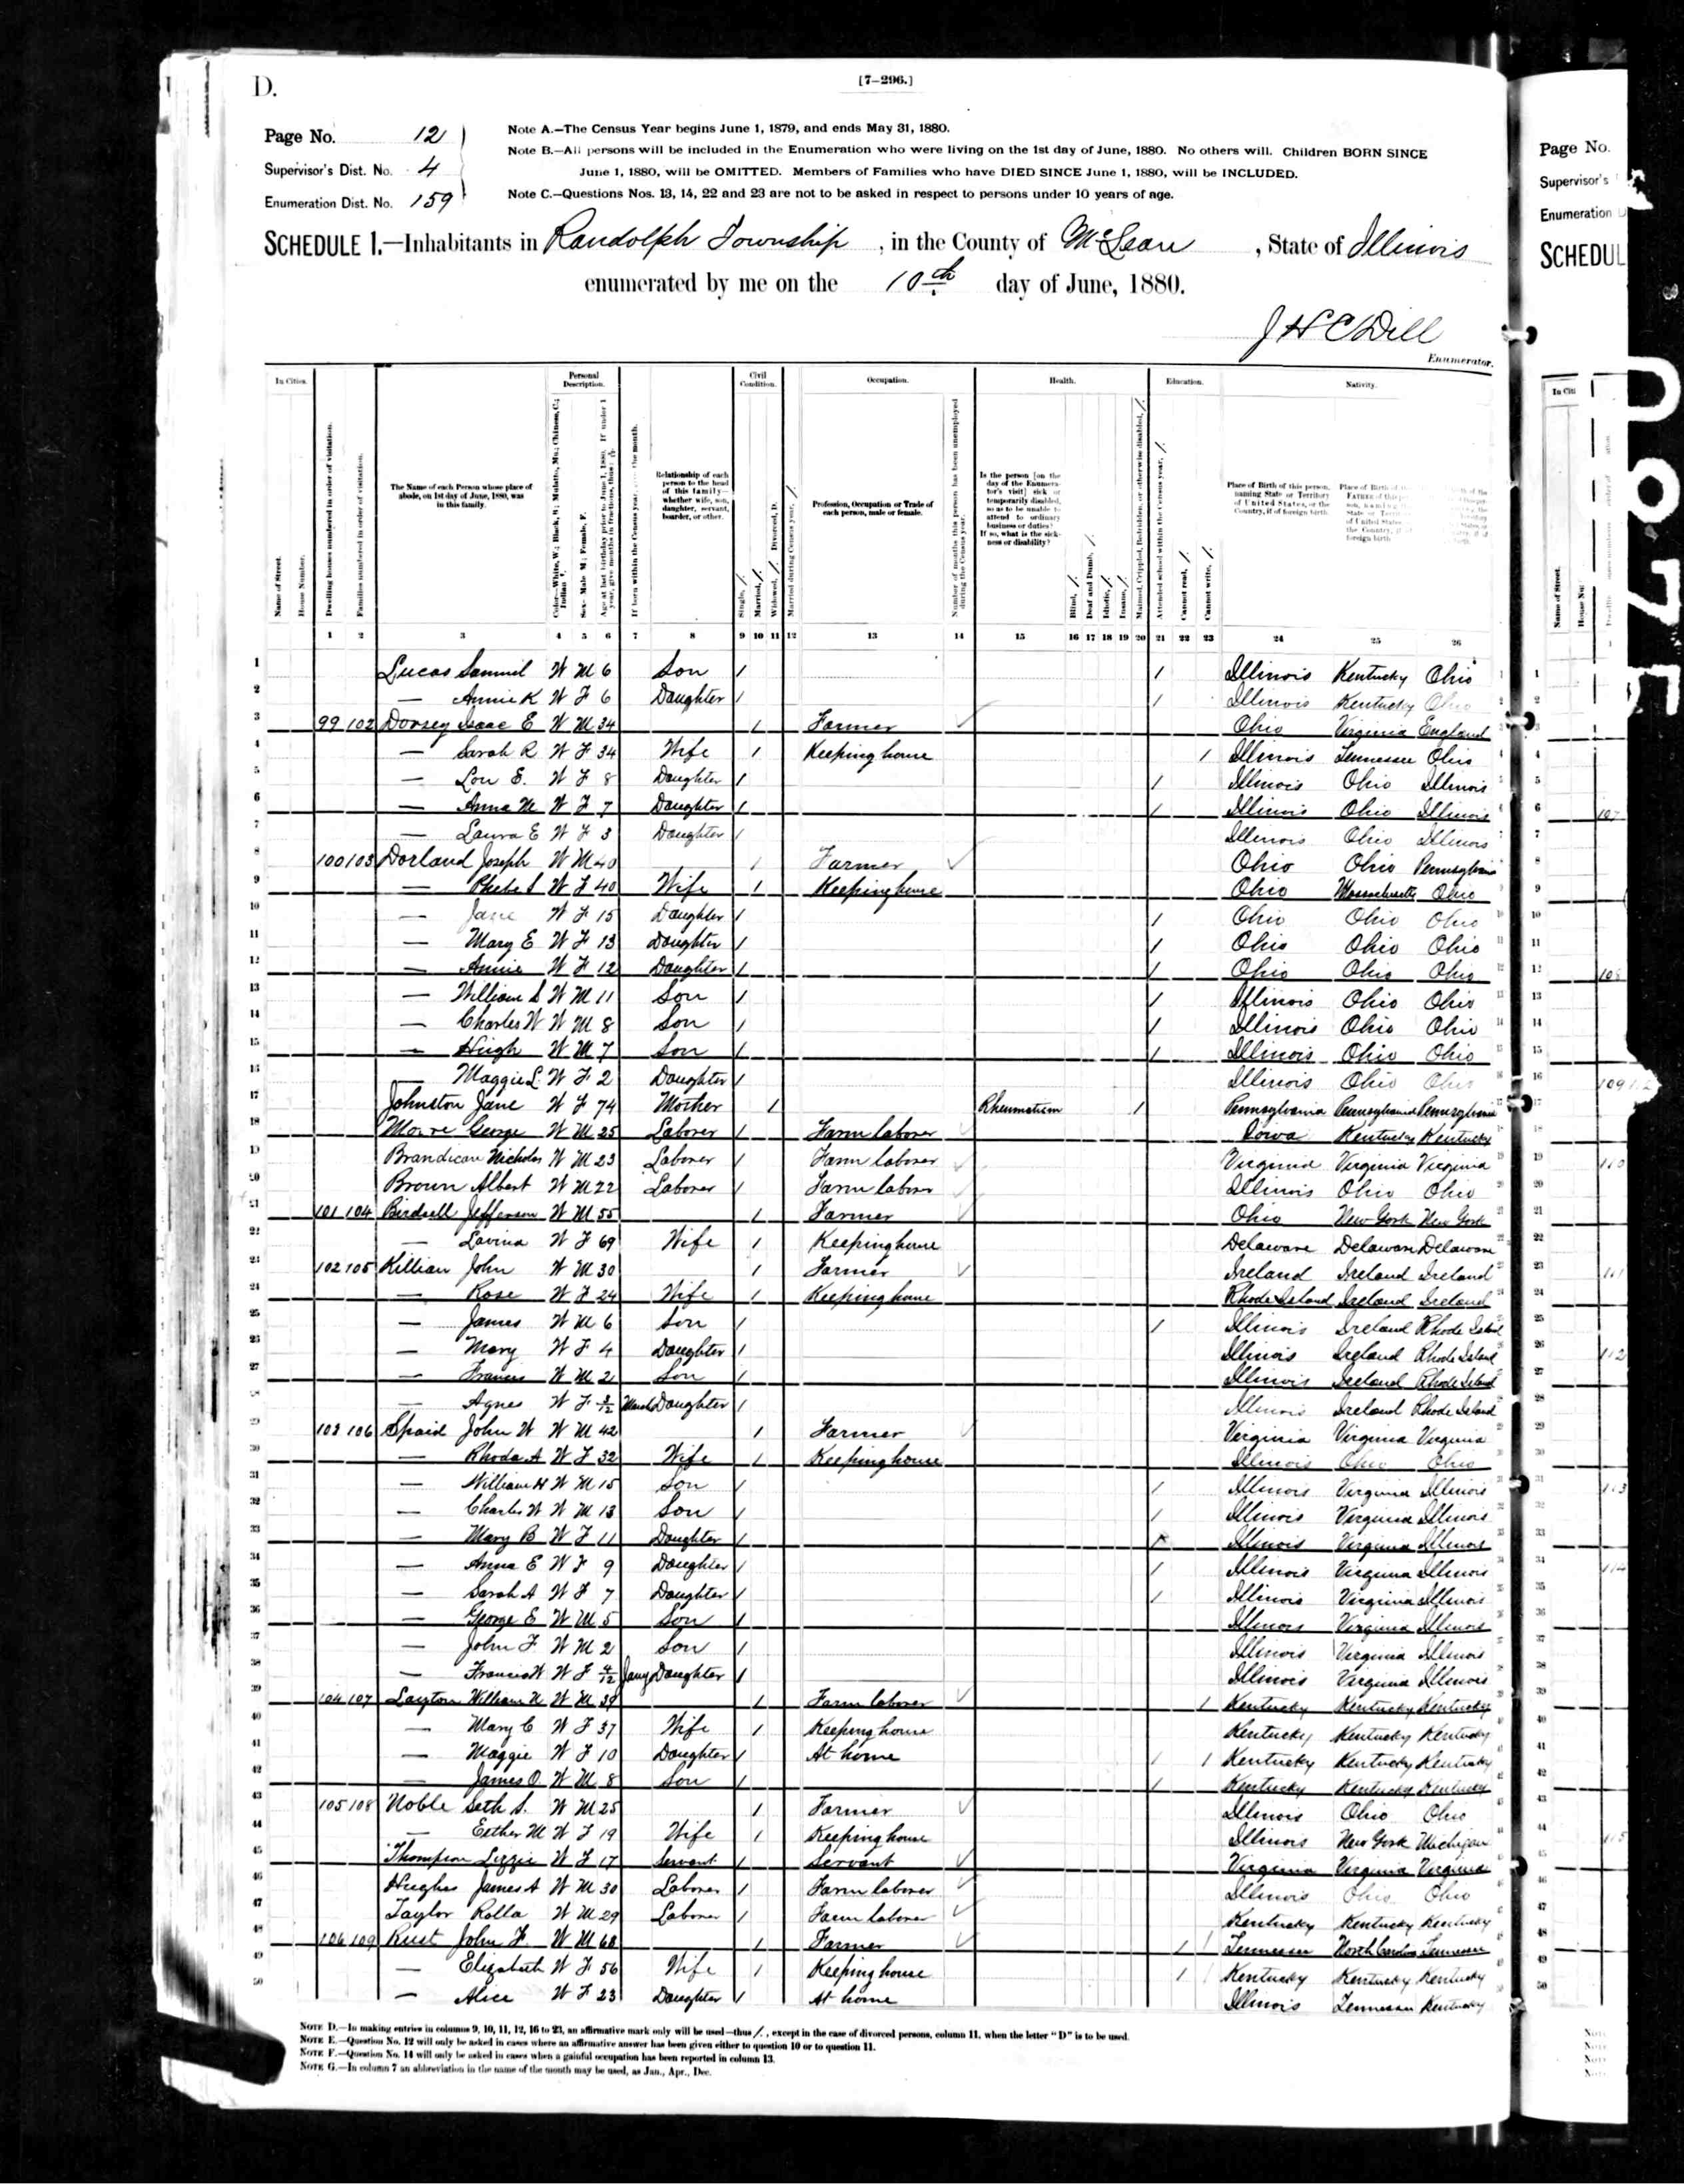 D.
[7-296.]
Page No. 12
Supervisor's Dist. No. 4
Enumeration Dist. No. 159
Note A.—The Census Year begins June 1, 1879, and ends May 31, 1880.
Note B.—All persons will be included in the Enumeration who were living on the 1st day of June, 1880. No others will. Children BORN SINCE
June 1, 1880, will be OMITTED. Members of Families who have DIED SINCE June 1, 1880, will be INCLUDED.
Note C.—Questions Nos. 13, 14, 22 and 23 are not to be asked in respect to persons under 10 years of age.
SCHEDULE 1.—Inhabitants in Randolph Township, in the County of McLean, State of Illinois
enumerated by me on the 10th day of June, 1880.
J H C Dill
Enumerator.
In Cities. Personal Description. Civil Condition. Occupation. Health. Education. Nativity.
Name of Street. House Number. Dwelling houses numbered in order of visitation. Families numbered in order of visitation.
The Name of each Person whose place of abode, on 1st day of June, 1880, was in this family.
Relationship of each person to the head of this family—whether wife, son, daughter, servant, boarder, or other.
Single, /. Married, /. Widowed, /. Divorced, D. Married during Census year, /.
Profession, Occupation or Trade of each person, male or female.
Number of months this person has been unemployed during the Census year.
Is the person [on the day of the Enumerator's visit] sick or temporarily disabled, so as to be unable to attend to ordinary business or duties? If so, what is the sickness or disability?
Blind, /. Deaf and Dumb, /. Idiotic, /. Insane, /. Maimed, Crippled, Bedridden, or otherwise disabled, /.
Attended school within the Census year, /. Cannot read, /. Cannot write, /.
Place of Birth of this person, naming State or Territory of United States, or the Country, if of foreign birth.
1 2 3 4 5 6 7 8 9 10 11 12 13 14 15 16 17 18 19 20 21 22 23 24 25 26
1 Lucas Samuel W M 6 Son / / Illinois Kentucky Ohio
2 — Annie K W F 6 Daughter / / Illinois Kentucky Ohio
3 99 102 Dorsey Isaac E W M 34 / Farmer Ohio Virginia England
4 — Sarah R W F 34 Wife / Keeping house / Illinois Tennessee Ohio
5 — Lou E. W F 8 Daughter / / Illinois Ohio Illinois
6 — Anna M W F 7 Daughter / / Illinois Ohio Illinois
7 — Laura E W F 3 Daughter / Illinois Ohio Illinois
8 100 103 Dorland Joseph W M 40 / Farmer Ohio Ohio Pennsylvania
9 — Phebe S W F 40 Wife / Keeping house Ohio Massachusetts Ohio
10 — Jane W F 15 Daughter / / Ohio Ohio Ohio
11 — Mary E W F 13 Daughter / / Ohio Ohio Ohio
12 — Annie W F 12 Daughter / / Ohio Ohio Ohio
13 — William S W M 11 Son / / Illinois Ohio Ohio
14 — Charles W W M 8 Son / / Illinois Ohio Ohio
15 — Hugh W M 7 Son / / Illinois Ohio Ohio
16 — Maggie L. W F 2 Daughter / Illinois Ohio Ohio
17 Johnston Jane W F 74 Mother / Rheumatism / Pennsylvania Pennsylvania Pennsylvania
18 Moore George W M 25 Laborer / Farm laborer Iowa Kentucky Kentucky
19 Nicholas W M 23 Laborer / Farm laborer Virginia Virginia Virginia
20 Brown Albert W M 22 Laborer / Farm labor Illinois Ohio Ohio
21 101 104 Birdsell Jefferson W M 55 / Farmer Ohio New York New York
22 — Lavina W F 69 Wife / Keeping house Delaware Delaware Delaware
23 102 105 Killian John W M 30 / Farmer Ireland Ireland Ireland
24 — Rose W F 24 Wife / Keeping house Rhode Island Ireland Ireland
25 — James W M 6 Son / / Illinois Ireland Rhode Island
26 — Mary W F 4 Daughter / Illinois Ireland Rhode Island
27 — Francis W M 2 Son / Illinois Ireland Rhode Island
28 — Agnes W F 3/12 March Daughter / Illinois Ireland Rhode Island
29 103 106 Spaid John W W M 42 / Farmer Virginia Virginia Virginia
30 — Rhoda A W F 32 Wife / Keeping house Illinois Ohio Ohio
31 — William H W M 15 Son / / Illinois Virginia Illinois
32 — Charles W W M 13 Son / / Illinois Virginia Illinois
33 — Mary B W F 11 Daughter / / Illinois Virginia Illinois
34 — Anna E W F 9 Daughter / / Illinois Virginia Illinois
35 — Sarah A W F 7 Daughter / / Illinois Virginia Illinois
36 — George E W M 5 Son / Illinois Virginia Illinois
37 — John F W M 2 Son / Illinois Virginia Illinois
38 — Frances W W F 4/12 Jany Daughter / Illinois Virginia Illinois
39 104 107 Layton William W M 39 / Farm laborer / Kentucky Kentucky Kentucky
40 — Mary C W F 37 Wife / Keeping house Kentucky Kentucky Kentucky
41 — Maggie W F 10 Daughter / At home / / Kentucky Kentucky Kentucky
42 — James O. W M 8 Son / / Kentucky Kentucky Kentucky
43 105 108 Noble Seth S. W M 25 / Farmer Illinois Ohio Ohio
44 — Esther M W F 19 Wife / Keeping house Illinois New York Michigan
45 Thompson Lizzie W F 17 Servant / Servant Virginia Virginia Virginia
46 Hughes James A W M 30 Laborer / Farm laborer Illinois Ohio Ohio
47 Taylor Rolla W M 29 Laborer / Farm laborer Kentucky Kentucky Kentucky
48 106 109 Rust John F. W M 60 / Farmer / / Tennessee North Carolina Tennessee
49 — Elizabeth W F 56 Wife / Keeping house / Kentucky Kentucky Kentucky
50 — Alice W F 23 Daughter / At home Illinois Tennessee Kentucky
NOTE D.—In making entries in columns 9, 10, 11, 12, 16 to 23, an affirmative mark only will be used—thus /. , except in the case of divorced persons, column 11, when the letter "D" is to be used.
NOTE E.—Question No. 12 will only be asked in cases where an affirmative answer has been given either to question 10 or to question 11.
NOTE F.—Question No. 14 will only be asked in cases when a gainful occupation has been reported in column 13.
NOTE G.—In column 7 an abbreviation in the name of the month may be used, as Jan., Apr., Dec.
Page No.
Supervisor's
Enumeration
SCHEDUL